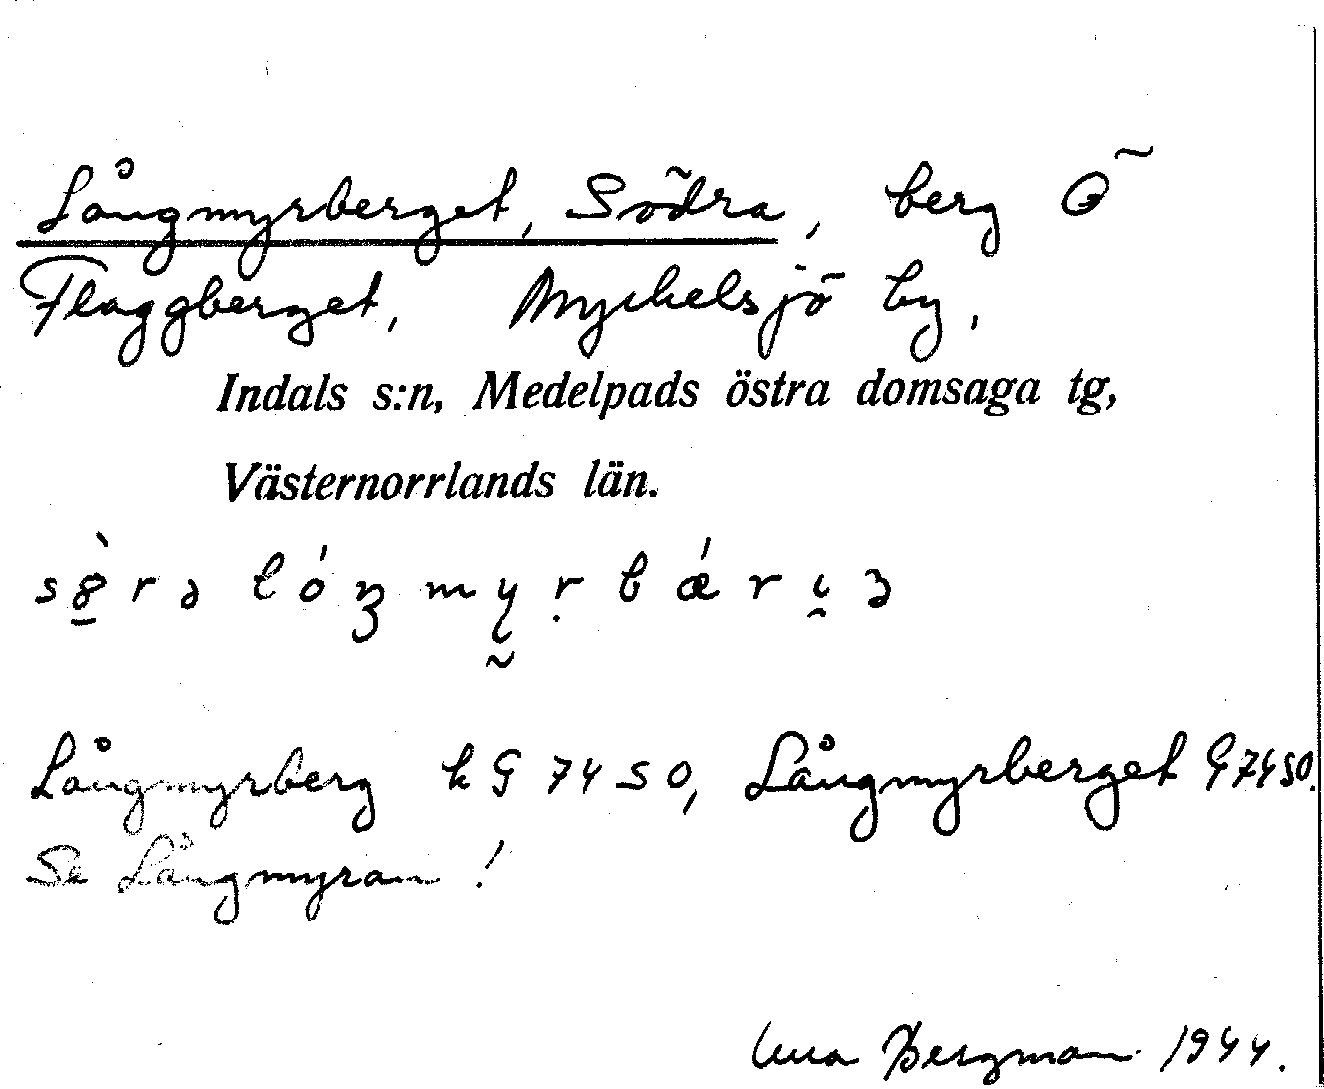 Långmyrberget, Södra, berg Ö
Flaggberget, Myckelsjö by,
Indals s:n, Medelpads östra domsaga tg,
Västernorrlands län.
Långmyrberg k G 7450, Långmyrberget G 7450.
Se Långmyran!
Bergman 1944.